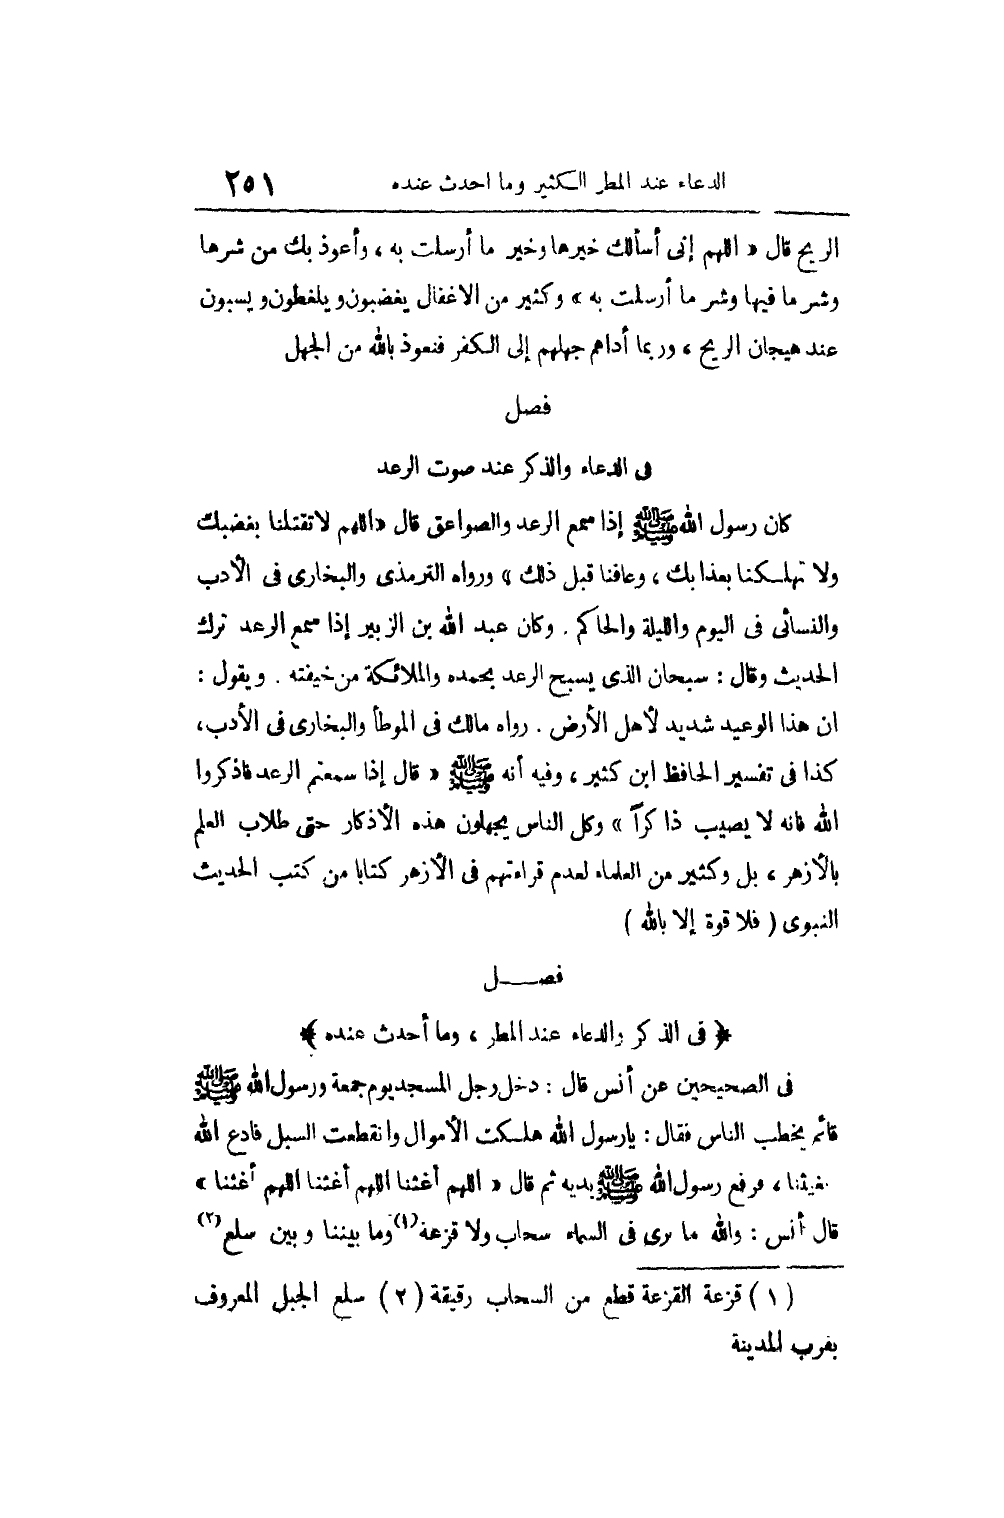 الدعاء عند المطر الكثير وما احدث عنده ٢٥١
الريح قال « اللهم إنى أسألك خيرها وخير ما أرسلت به ، وأعوذ بك من شرها
وشر ما فيها وشر ما أرسلت به » وكثير من الاغفال يغضبون ويلغطون ويسبون
عند هيجان الريح ، وربما أداهم جهلهم إلى الكفر فنعوذ بالله من الجهل
فصل
فى الدعاء والذكر عند صوت الرعد
كان رسول الله ﷺ إذا سمع الرعد والصواعق قال «اللهم لا تقتلنا بغضبك
ولا تهلكنا بعذابك ، وعافنا قبل ذلك » ورواه الترمذى والبخارى فى الأدب
والنسائى فى اليوم والليلة والحاكم . وكان عبد الله بن الزبير إذا سمع الرعد ترك
الحديث وقال : سبحان الذى يسبح الرعد بحمده والملائكة من خيفته . ويقول :
ان هذا الوعيد شديد لأهل الأرض . رواه مالك فى الموطأ والبخارى فى الأدب،
كذا فى تفسير الحافظ ابن كثير ، وفيه أنه ﷺ « قال إذا سمعتم الرعد فاذكروا
الله فانه لا يصيب ذاكراً » وكل الناس يجهلون هذه الأذكار حتى طلاب العلم
بالأزهر ، بل وكثير من العلماء لعدم قراءتهم فى الأزهر كتابا من كتب الحديث
النبوى ( فلا قوة إلا بالله )
فصــل
﴿ فى الذكر والدعاء عند المطر ، وما أحدث عنده ﴾
فى الصحيحين عن أنس قال : دخل رجل المسجد يوم جمعة ورسول الله ﷺ
قائم يخطب الناس فقال : يارسول الله هلكت الأموال وانقطعت السبل فادع الله
يغيثنا ، فرفع رسول الله ﷺ يديه ثم قال « اللهم أغثنا اللهم أغثنا اللهم أغثنا »
قال أنس : والله ما نرى فى السماء سحاب ولا قزعة (١) وما بيننا وبين سلع (٢)
(١) قزعة القزعة قطع من السحاب رقيقة (٢) سلع الجبل المعروف
بقرب المدينة